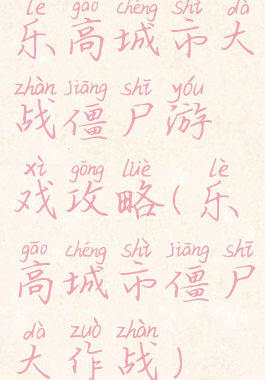 lè gāo chéng shì dà
乐高城市大
zhàn jiāng shī yóu
战僵尸游
xì gōng lüè lè
戏攻略(乐
gāo chéng shì jiāng shī
高城市僵尸
dà zuò zhàn
大作战)